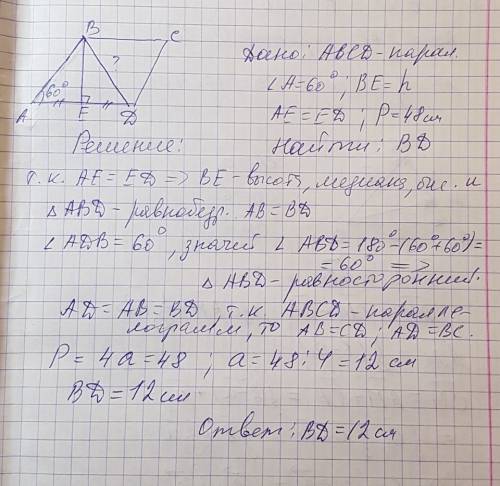 B C
Дано: ABCD - парал.
?
∠A = 60°; BE = h
60°
A E D
AE = ED; P = 48 см
Решение:
Найти: BD
т.к. AE = ED => BE - высота, медиана, бис. и
△ ABD - равнобедр. AB = BD
∠ ADB = 60°, значит ∠ ABD = 180° - (60° + 60°) =
= 60° =>
△ ABD - равносторонний.
AD = AB = BD, т.к. ABCD - паралле-
лограмм, то AB = CD; AD = BC.
P = 4a = 48 ; a = 48 : 4 = 12 см
BD = 12 см
Ответ: BD = 12 см